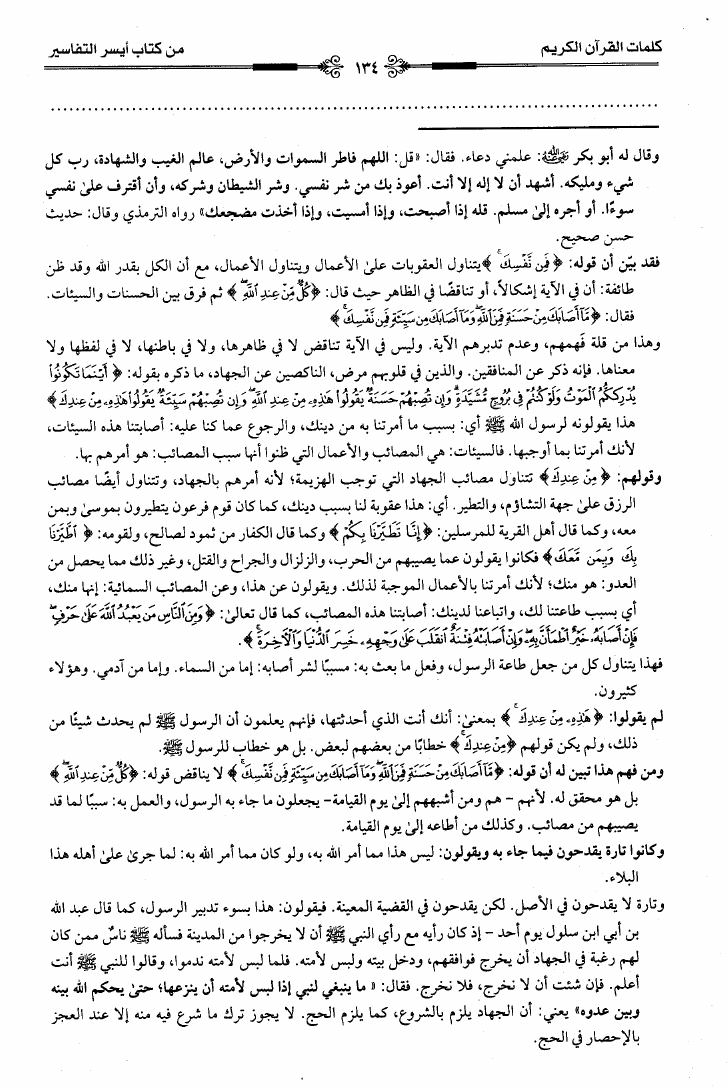 كلمات القرآن الكريم
١٣٤
من كتاب أيسر التفاسير
وقال له أبو بكر رضي الله عنه: علمني دعاء. فقال: «قل: اللهم فاطر السموات والأرض، عالم الغيب والشهادة، رب كل
شيء ومليكه. أشهد أن لا إله إلا أنت. أعوذ بك من شر نفسي. وشر الشيطان وشركه، وأن أقترف علىٰ نفسي
سوءًا. أو أجره إلىٰ مسلم. قله إذا أصبحت، وإذا أمسيت، وإذا أخذت مضجعك» رواه الترمذي وقال: حديث
حسن صحيح.
فقد بيّن أن قوله: ﴿فَمِن نَّفْسِكَ﴾ يتناول العقوبات علىٰ الأعمال ويتناول الأعمال، مع أن الكل بقدر الله وقد ظن
طائفة: أن في الآية إشكالاً، أو تناقضًا في الظاهر حيث قال: ﴿كُلٌّ مِّنْ عِندِ اللَّهِ﴾ ثم فرق بين الحسنات والسيئات.
فقال: ﴿مَّا أَصَابَكَ مِنْ حَسَنَةٍ فَمِنَ اللَّهِ وَمَا أَصَابَكَ مِن سَيِّئَةٍ فَمِن نَّفْسِكَ﴾
وهذا من قلة فهمهم، وعدم تدبرهم الآية. وليس في الآية تناقض لا في ظاهرها، ولا في باطنها، لا في لفظها ولا
معناها. فإنه ذكر عن المنافقين. والذين في قلوبهم مرض، الناكصين عن الجهاد، ما ذكره بقوله: ﴿أَيْنَمَا تَكُونُوا
يُدْرِككُّمُ الْمَوْتُ وَلَوْ كُنتُمْ فِي بُرُوجٍ مُّشَيَّدَةٍ وَإِن تُصِبْهُمْ حَسَنَةٌ يَقُولُوا هَٰذِهِ مِنْ عِندِ اللَّهِ وَإِن تُصِبْهُمْ سَيِّئَةٌ يَقُولُوا هَٰذِهِ مِنْ عِندِكَ﴾
هذا يقولونه لرسول الله ﷺ أي: بسبب ما أمرتنا به من دينك، والرجوع عما كنا عليه: أصابتنا هذه السيئات،
لأنك أمرتنا بما أوجبها. فالسيئات: هي المصائب والأعمال التي ظنوا أنها سبب المصائب: هو أمرهم بها.
وقولهم: ﴿مِنْ عِندِكَ﴾ تتناول مصائب الجهاد التي توجب الهزيمة؛ لأنه أمرهم بالجهاد، وتتناول أيضًا مصائب
الرزق علىٰ جهة التشاؤم، والتطير. أي: هذا عقوبة لنا بسبب دينك، كما كان قوم فرعون يتطيرون بموسىٰ وبمن
معه، وكما قال أهل القرية للمرسلين: ﴿إِنَّا تَطَيَّرْنَا بِكُمْ﴾ وكما قال الكفار من ثمود لصالح، ولقومه: ﴿اطَّيَّرْنَا
بِكَ وَبِمَن مَّعَكَ﴾ فكانوا يقولون عما يصيبهم من الحرب، والزلزال والجراح والقتل، وغير ذلك مما يحصل من
العدو: هو منك؛ لأنك أمرتنا بالأعمال الموجبة لذلك. ويقولون عن هذا، وعن المصائب السمائية: إنها منك،
أي بسبب طاعتنا لك، واتباعنا لدينك: أصابتنا هذه المصائب، كما قال تعالىٰ: ﴿وَمِنَ النَّاسِ مَن يَعْبُدُ اللَّهَ عَلَىٰ حَرْفٍ
فَإِنْ أَصَابَهُ خَيْرٌ اطْمَأَنَّ بِهِ وَإِنْ أَصَابَتْهُ فِتْنَةٌ انقَلَبَ عَلَىٰ وَجْهِهِ خَسِرَ الدُّنْيَا وَالْآخِرَةَ﴾.
فهذا يتناول كل من جعل طاعة الرسول، وفعل ما بعث به: مسببًا لشر أصابه: إما من السماء. وإما من آدمي. وهؤلاء
كثيرون.
لم يقولوا: ﴿هَٰذِهِ مِنْ عِندِكَ﴾ بمعنىٰ: أنك أنت الذي أحدثتها، فإنهم يعلمون أن الرسول ﷺ لم يحدث شيئًا من
ذلك، ولم يكن قولهم ﴿مِنْ عِندِكَ﴾ خطابًا من بعضهم لبعض. بل هو خطاب للرسول ﷺ.
ومن فهم هذا تبين له أن قوله: ﴿مَّا أَصَابَكَ مِنْ حَسَنَةٍ فَمِنَ اللَّهِ وَمَا أَصَابَكَ مِن سَيِّئَةٍ فَمِن نَّفْسِكَ﴾ لا يناقض قوله: ﴿كُلٌّ مِّنْ عِندِ اللَّهِ﴾
بل هو محقق له. لأنهم – هم ومن أشبههم إلىٰ يوم القيامة– يجعلون ما جاء به الرسول، والعمل به: سببًا لما قد
يصيبهم من مصائب. وكذلك من أطاعه إلىٰ يوم القيامة.
وكانوا تارة يقدحون فيما جاء به ويقولون: ليس هذا مما أمر الله به، ولو كان مما أمر الله به: لما جرىٰ علىٰ أهله هذا
البلاء.
وتارة لا يقدحون في الأصل. لكن يقدحون في القضية المعينة. فيقولون: هذا بسوء تدبير الرسول، كما قال عبد الله
بن أبي ابن سلول يوم أحد – إذ كان رأيه مع رأي النبي ﷺ أن لا يخرجوا من المدينة فسأله ﷺ ناسٌ ممن كان
لهم رغبة في الجهاد أن يخرج فوافقهم، ودخل بيته ولبس لأمته. فلما لبس لأمته ندموا، وقالوا للنبي ﷺ أنت
أعلم. فإن شئت أن لا نخرج، فلا نخرج. فقال: « ما ينبغي لنبي إذا لبس لأمته أن ينزعها؛ حتىٰ يحكم الله بينه
وبين عدوه» يعني: أن الجهاد يلزم بالشروع، كما يلزم الحج. لا يجوز ترك ما شرع فيه منه إلا عند العجز
بالإحصار في الحج.